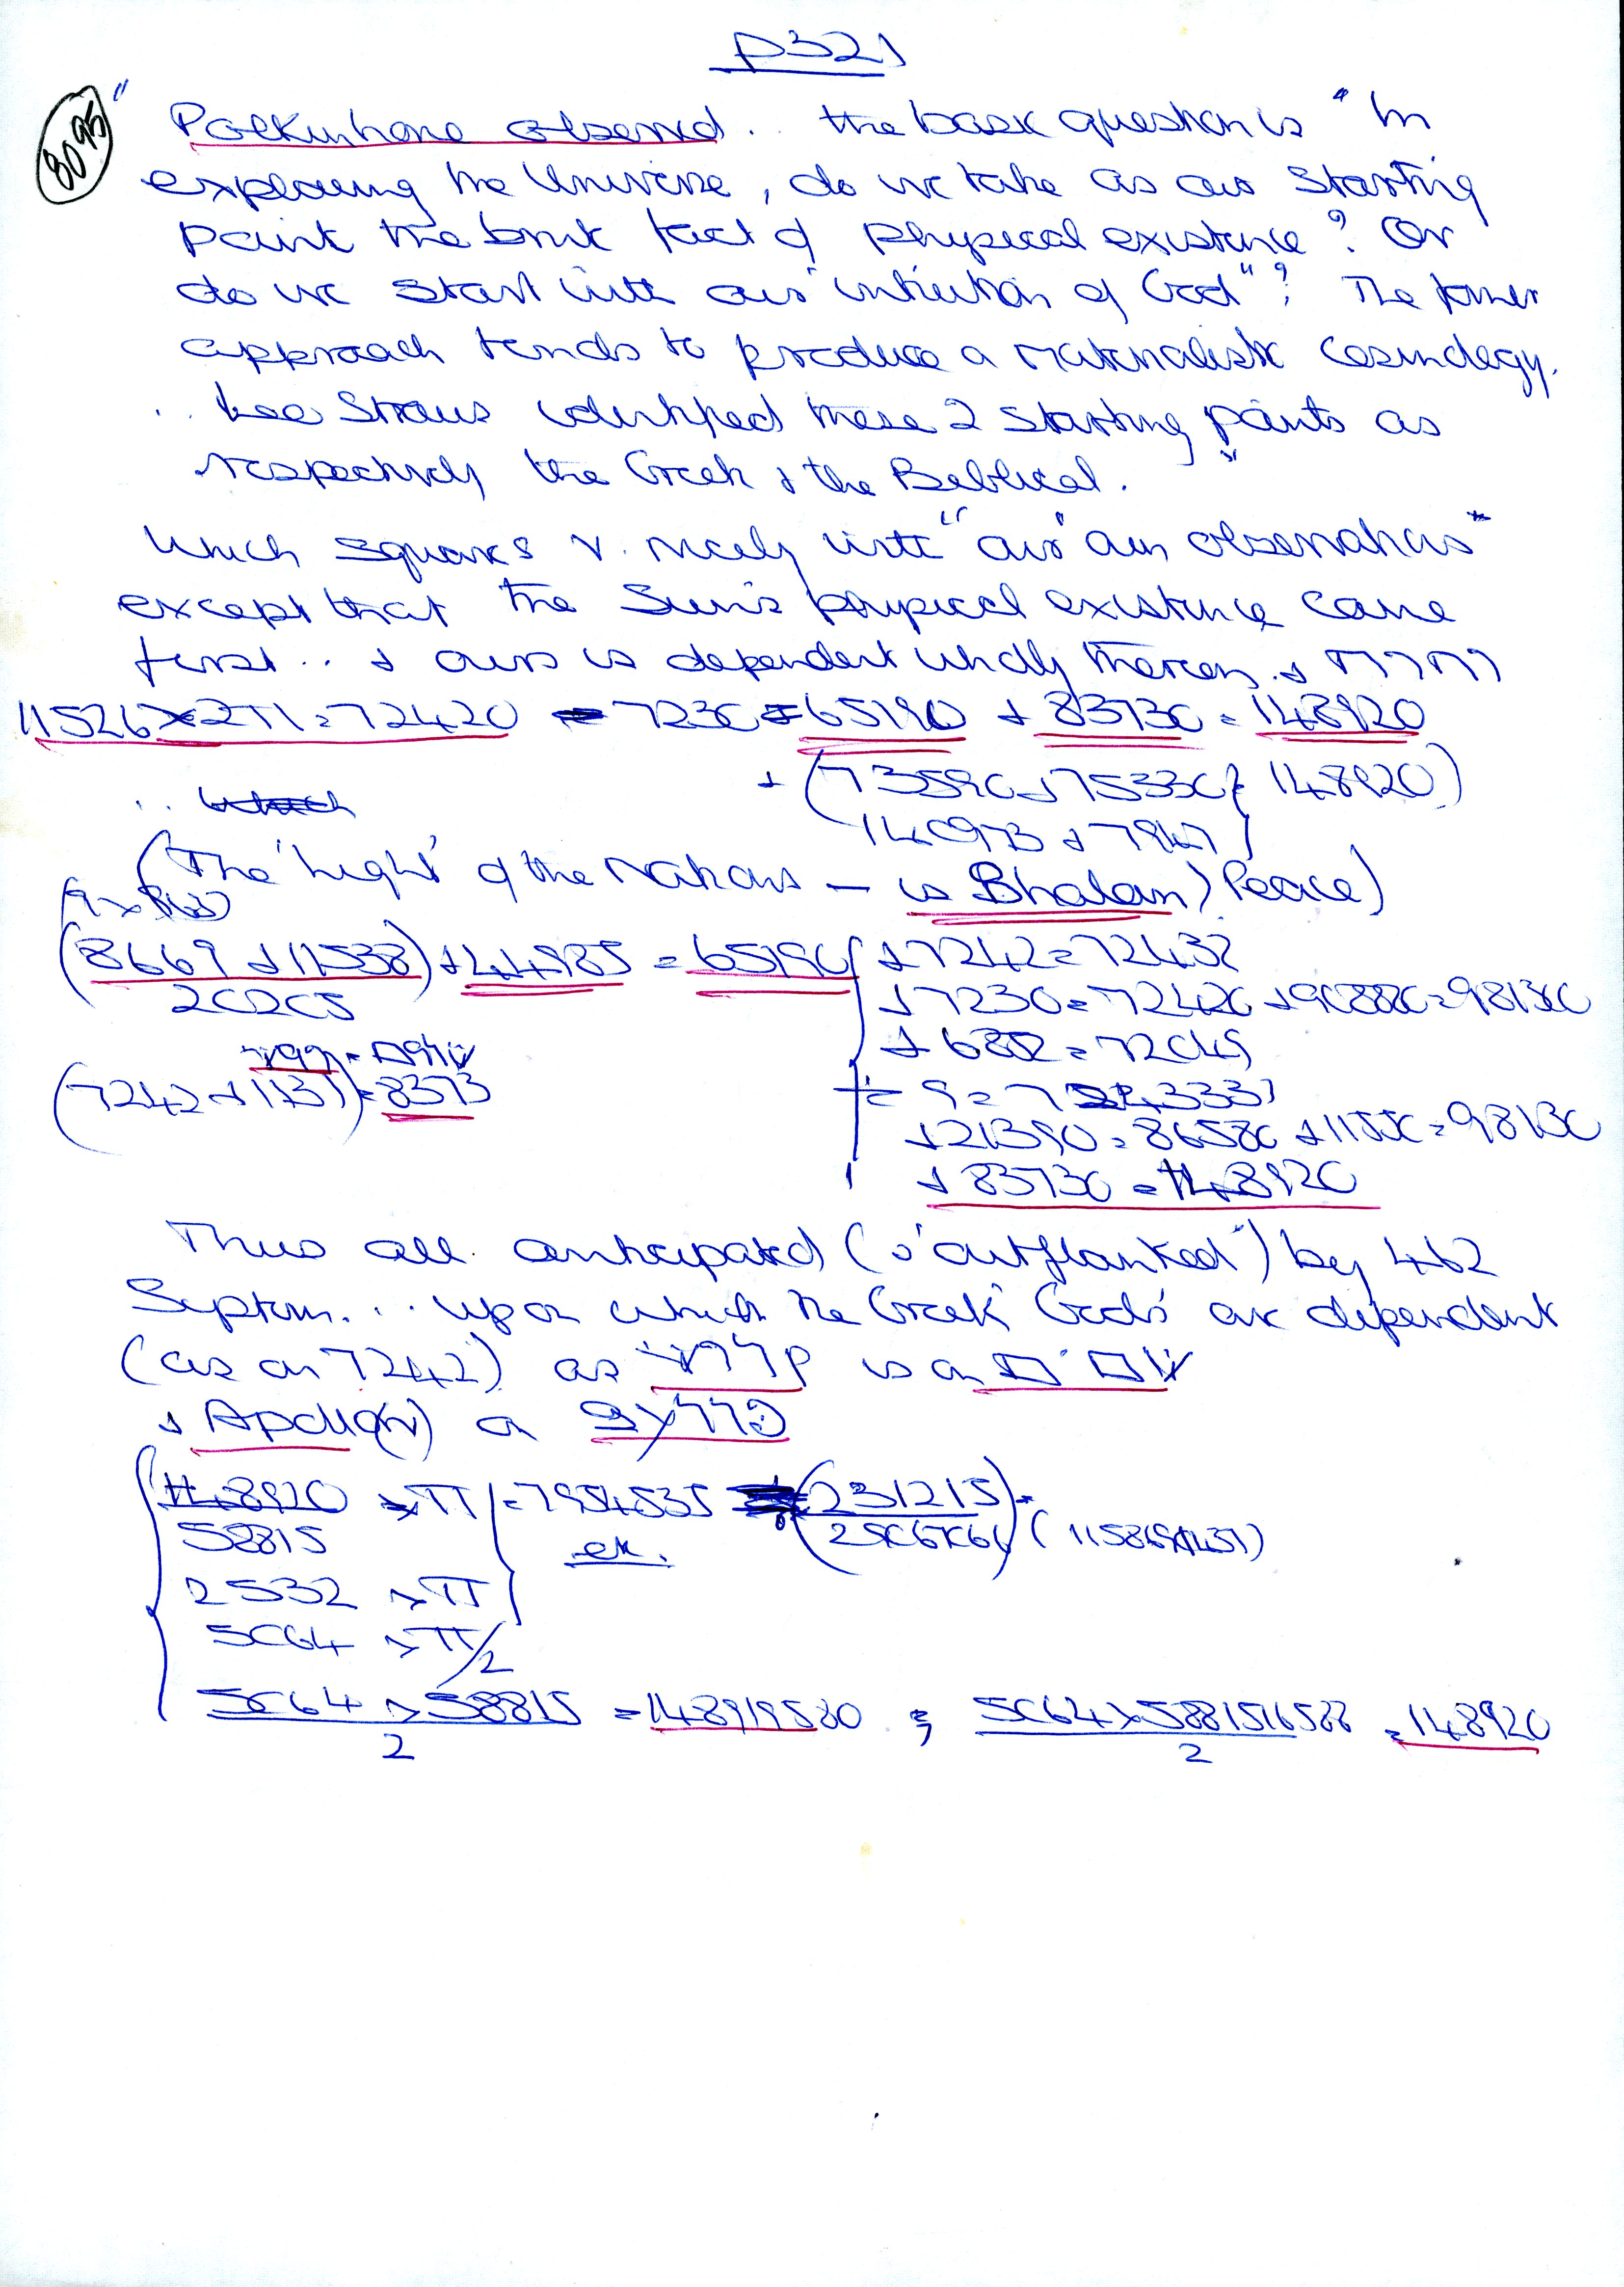 p321
8095
" Polkinhorne observed .. the basic question is "In
exploring the Universe, do we take as our starting
point the brute fact of physical existence? Or
do we start with our intuition of God"? The former
approach tends to produce a materialistic cosmology.
.. Leo Straus identified these 2 starting points as
respectively the Greek & the Biblical.
Which squares v. nicely with "our own observations"
except that the Sun's physical existence came
first .. & ours is dependent wholly thereon. &
11526 x 2π = 72420 - 7230 = 65190 + 83730 = 148920
+ (73590 + 75330 } 148920)
140973 + 7947
..
(The 'Light' of the Nations — is Bhalam) Peace)
(8669 + 11538) + 44985 = 65190 + 7242 = 72432
20205
+ 7230 = 72420 + = 98130
(7242 + 1131) = 8373
÷ 9 = 7
+ 21390 = 86580 + 11550 = 98130
+ 83730 = 148920
Thus all anticipated (& 'outflanked') by 462
.. upon which the Greek 'Gods' are dependent
(as on 7242) as is a
& Apollo(n) a
148920 x π = 7954535 (231215) =
58815
ex.
2532 x π
5064 x π/2
5064 x 58815 = 148919580 ; 5064 x 5881516588 = 148920
2 2